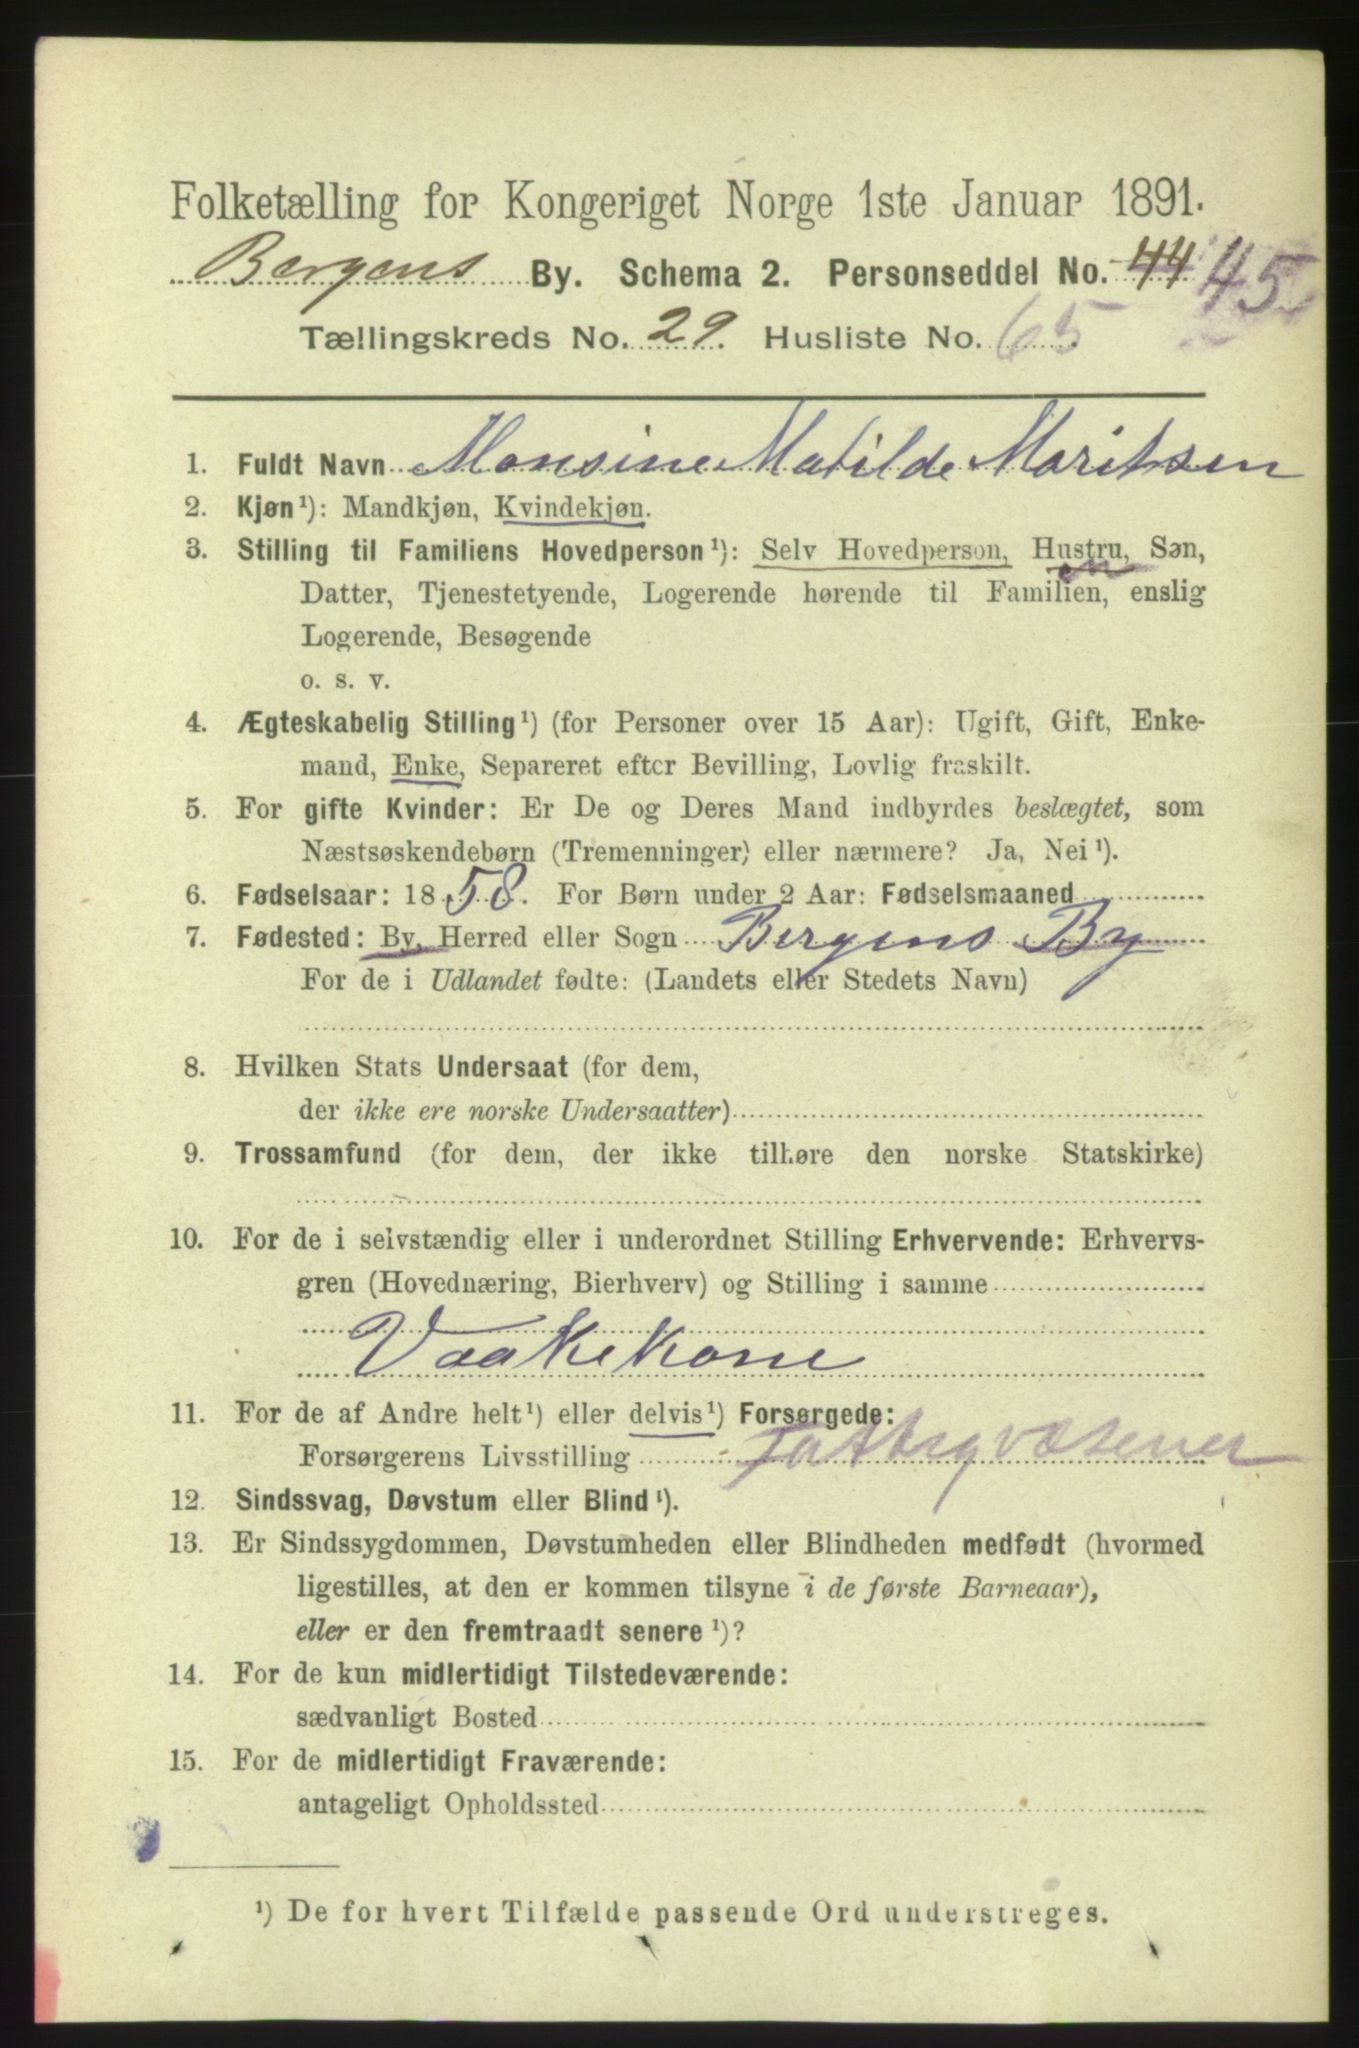 Folketælling for Kongeriget Norge 1ste Januar 1891.
Bergens By. Schema 2. Personseddel No. 44 45
Tællingskreds No. 29. Husliste No. 65
1. Fuldt Navn Monsine Matilde Maritsen
2. Kjøn¹): Mandkjøn, Kvindekjøn.
3. Stilling til Familiens Hovedperson¹): Selv Hovedperson, Hustru, Søn,
Datter, Tjenestetyende, Logerende hørende til Familien, enslig
Logerende, Besøgende
o. s. v.
4. Ægteskabelig Stilling¹) (for Personer over 15 Aar): Ugift, Gift, Enke-
mand, Enke, Separeret efter Bevilling, Lovlig fraskilt.
5. For gifte Kvinder: Er De og Deres Mand indbyrdes beslægtet, som
Næstsøskendebørn (Tremenninger) eller nærmere? Ja, Nei¹).
6. Fødselsaar: 1858. For Børn under 2 Aar: Fødselsmaaned
7. Fødested: By, Herred eller Sogn Bergens By
For de i Udlandet fødte: (Landets eller Stedets Navn)
8. Hvilken Stats Undersaat (for dem,
der ikke ere norske Undersaatter)
9. Trossamfund (for dem, der ikke tilhøre den norske Statskirke)
10. For de i selvstændig eller i underordnet Stilling Erhvervende: Erhvervs-
gren (Hovednæring, Bierhverv) og Stilling i samme
Vaakekone
11. For de af Andre helt¹) eller delvis¹) Forsørgede:
Forsørgerens Livsstilling Fattigvæsenet
12. Sindssvag, Døvstum eller Blind¹).
13. Er Sindssygdommen, Døvstumheden eller Blindheden medfødt (hvormed
ligestilles, at den er kommen tilsyne i de første Barneaar),
eller er den fremtraadt senere¹)?
14. For de kun midlertidigt Tilstedeværende:
sædvanligt Bosted
15. For de midlertidigt Fraværende:
antageligt Opholdssted
¹) De for hvert Tilfælde passende Ord understreges.